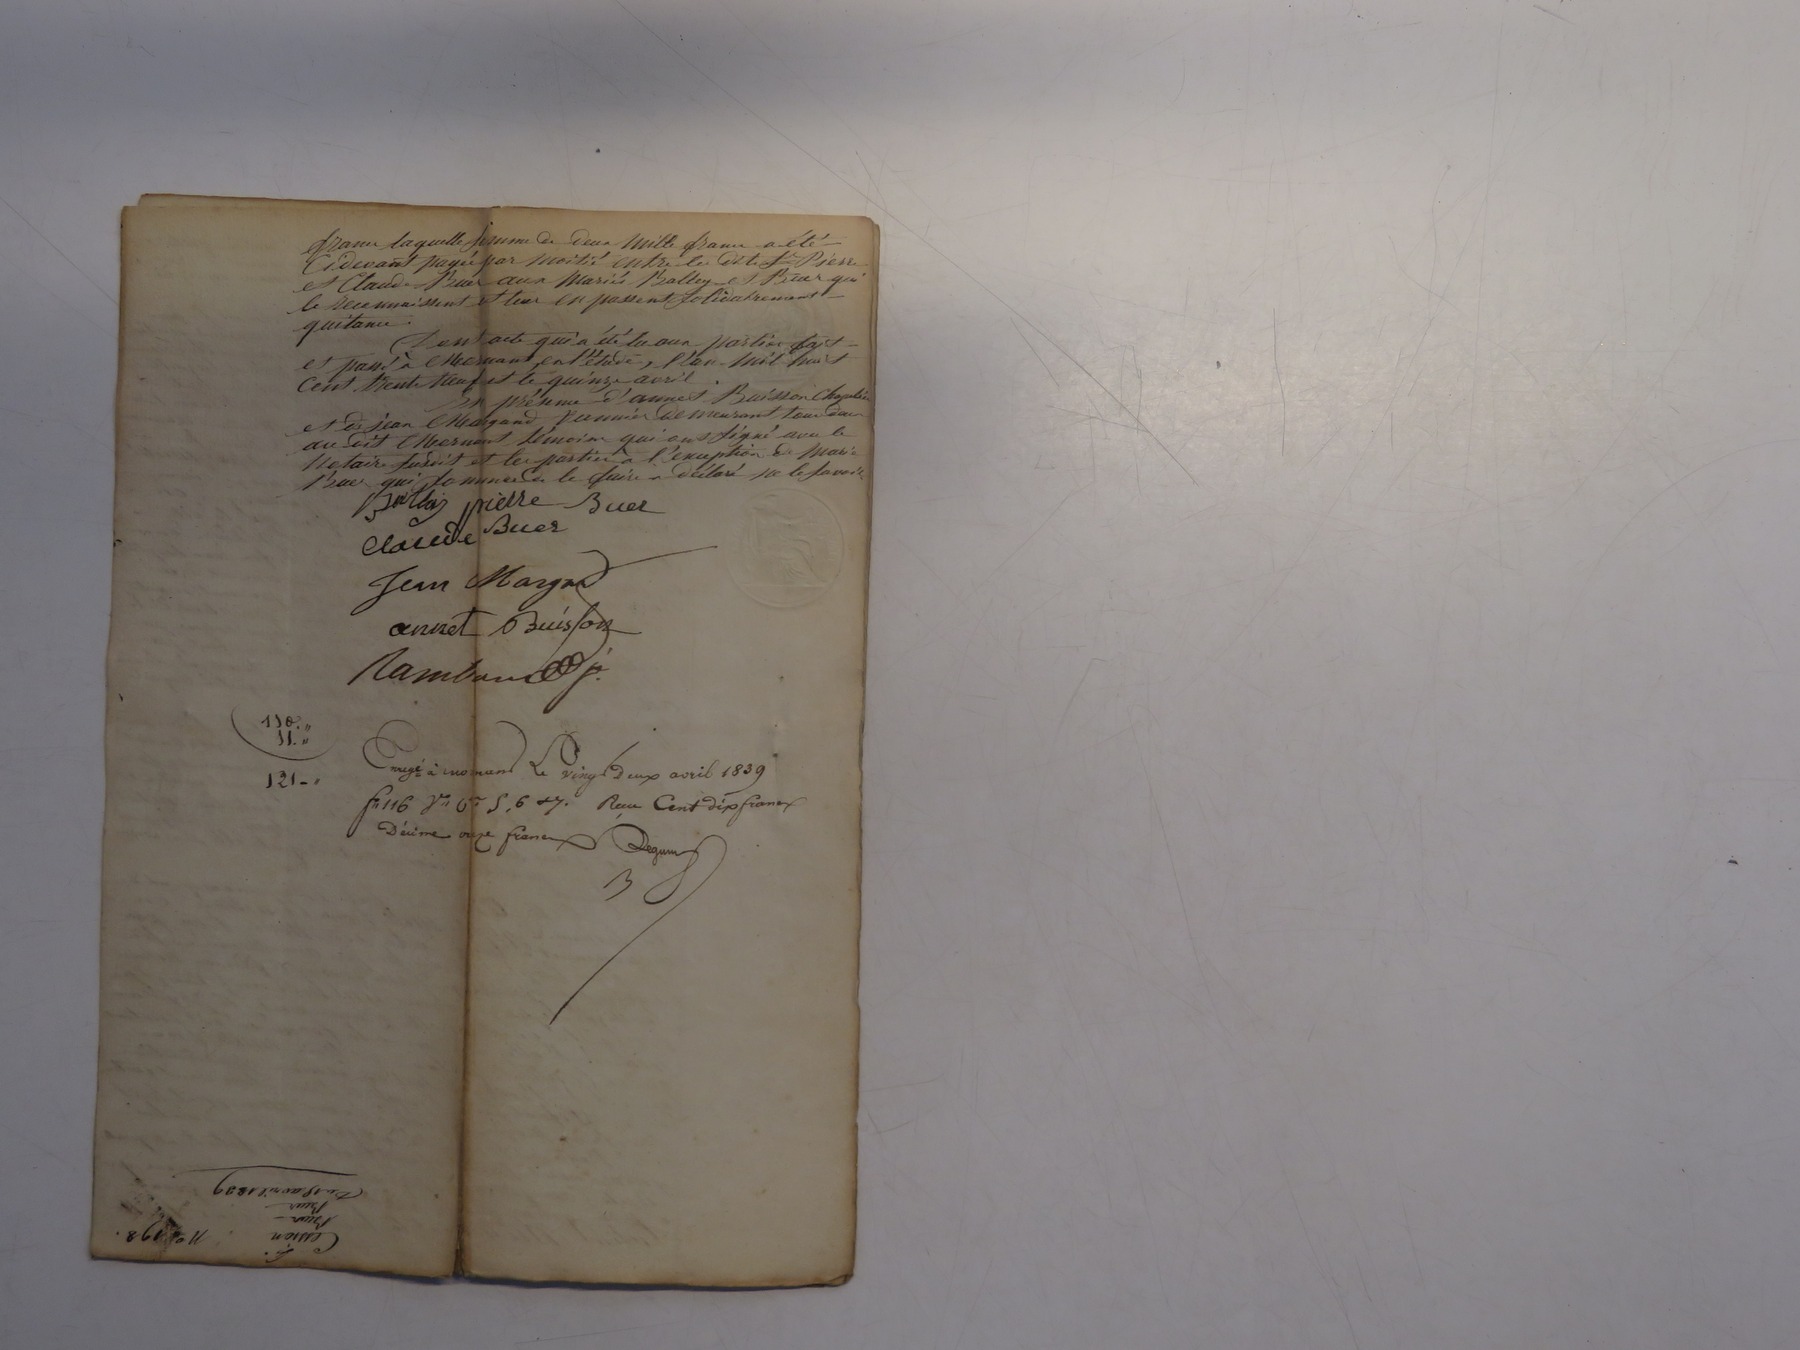 francs laquelle somme de deux mille francs a été
ci devant payée par moitié entre les dits Sr Pierre
et Claude Buer aux Mariés Balley et Buer qui
le reconnaissent et leur en passent solidairement
quitance.
Dont acte qui a été lu aux parties fait
et passé à Mornant, en l'étude, l'an mil huit
cent trente neuf et le quinze avril.
En présence d'annet Buisson Chapelier
et de jean Margand demeurant tous deux
au dit Mornant témoins qui ont signé avec le
Notaire susdit et les parties à l'exception de Marie
Buer qui sommée de le faire a déclaré ne le savoir
pierre Buer
Claude Buer
Jean Margand
annet Buisson
Rambaud j.
110. "
11. "
121 - "
Enregé à mornant Le vingt Deux avril 1839
fo 116 Vo Ces 5, 6 et 7. Reçu Cent dix francs
Décime onze francs
No 198.
Cession
Buer
Buer
Du 15 avril 1839